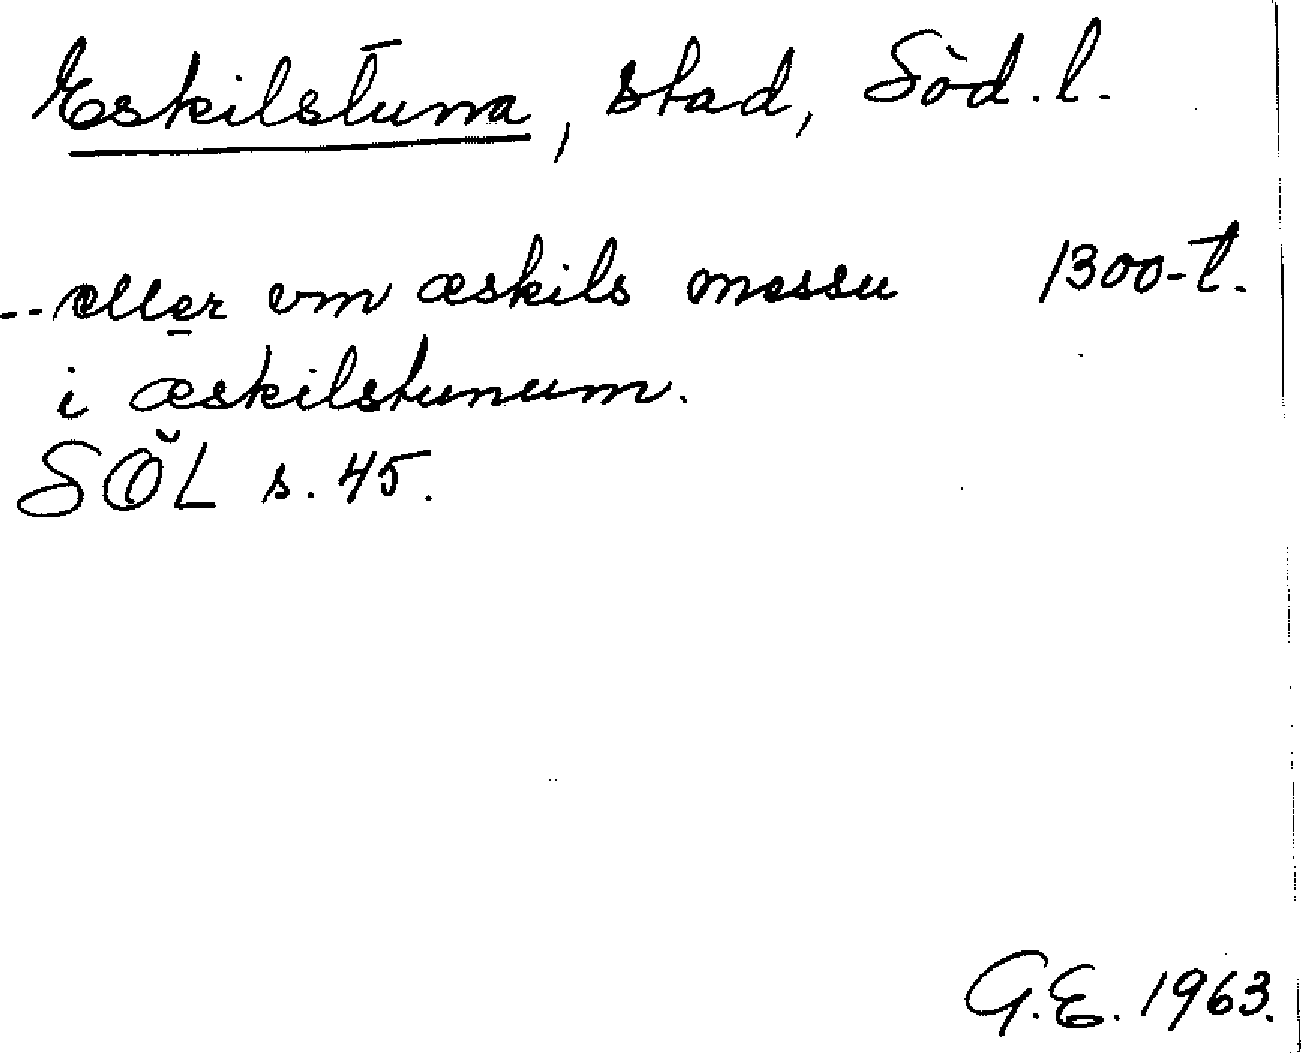 Eskilstuna, stad, Söd. l.
-- eller vm æskils messu 1300-t.
i æskilstunum.
SÖL s. 45.
G.E. 1963.